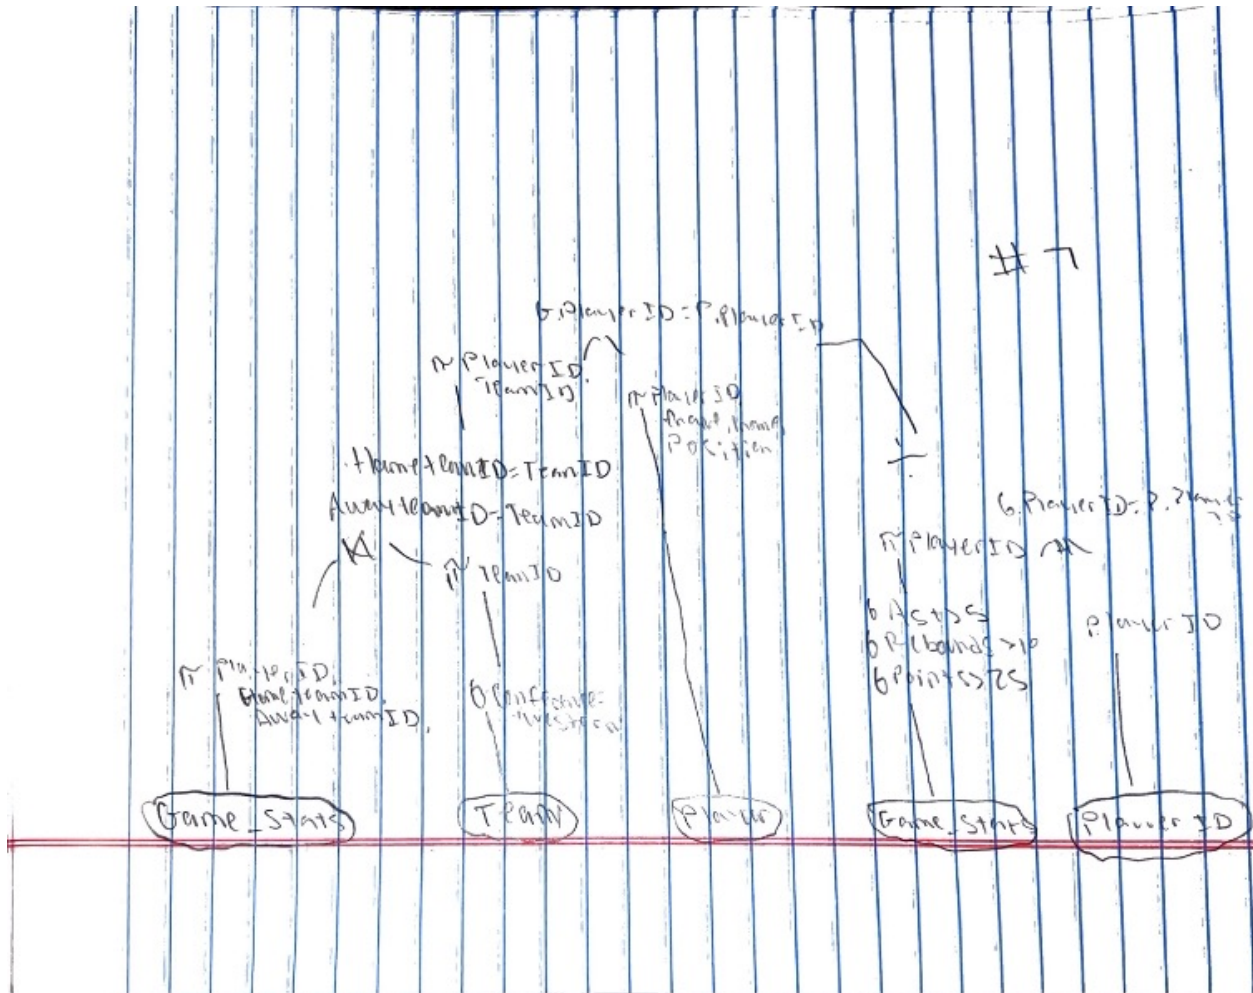 # 7
G.PlayerID = P.PlayerID
π PlayerID,
TeamID
π PlayerID
Position
HometeamID = TeamID
AwayteamID = TeamID
G.PlayerID = P.
π PlayerID
π TeamID
σ Ast > 5
σ Rebounds > 10
σ Points > 25
PlayerID
π PlayerID,
HometeamID,
AwayteamID,
Game_Stats
Team
Player
Game_Stats
Player ID